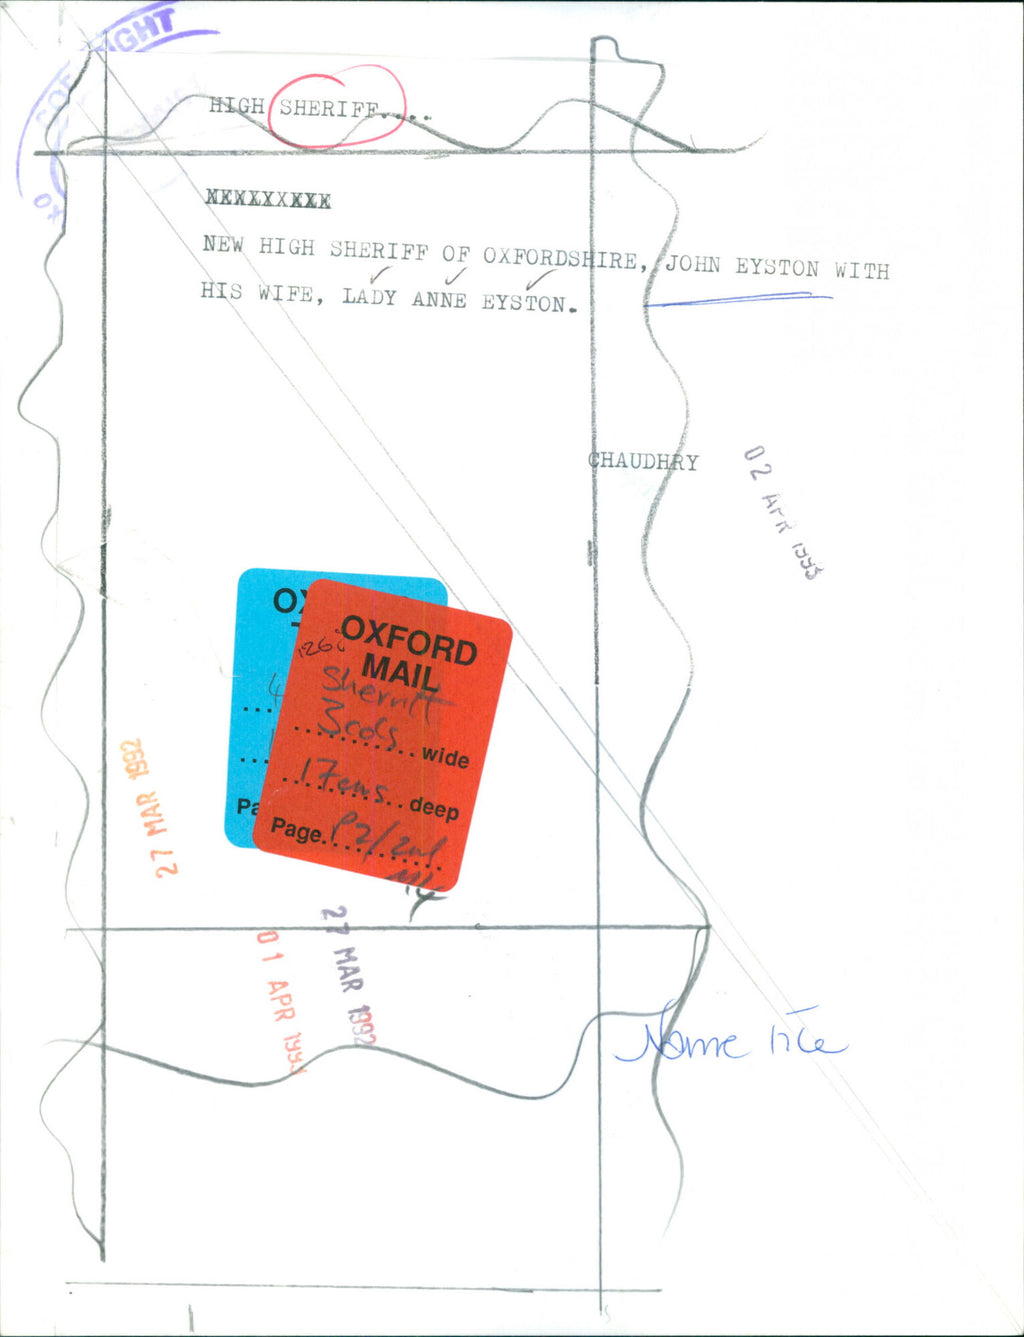 GHT
HIGH SHERIFF....
NEW HIGH SHERIFF OF OXFORDSHIRE, JOHN EYSTON WITH
HIS WIFE, LADY ANNE EYSTON.
CHAUDHRY
02 APR 1993
OXFORD
MAIL
Sherriff
3cols wide
17ems deep
Page. P2/2nd
Pa
27 MAR 1992
27 MAR 1992
01 APR 1993
Name